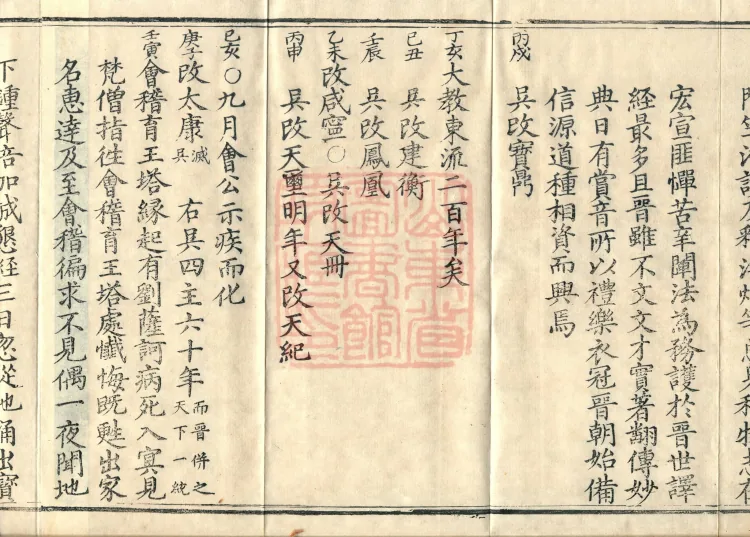 宏宣匪憚苦辛闡法為務護於晉世譯
經最多且晉雖不文文才實著翻傳妙
典日有賞音所以禮樂衣冠晉朝始備
信源道種相資而興焉
丙戌 吳改寶鼎
丁亥大教東流二百年矣
己丑 吳改建衡
壬辰 吳改鳳凰
乙未改咸寧一〇吳改天冊
丙申 吳改天璽明年又改天紀
己亥〇九月會公示疾而化
庚子改太康滅吳 右吳四主六十年而晉併之天下一統
壬寅會稽育王塔緣起有劉薩訶病死入冥見
梵僧指往會稽育王塔處懺悔既甦出家
名惠達及至會稽徧求不見偶一夜聞地
下鍾聲倍加誠懇經三日忽從地涌出寶
山東省
圖書館